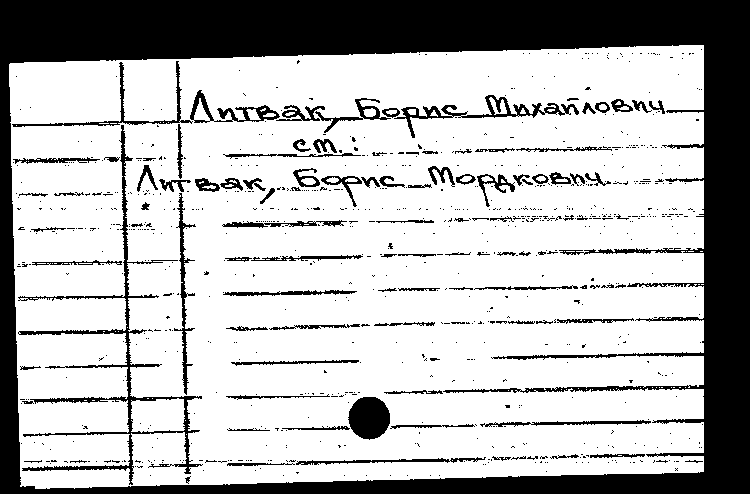 Литвак, Борис Михайлович
см.:
Литвак, Борис Мордкович